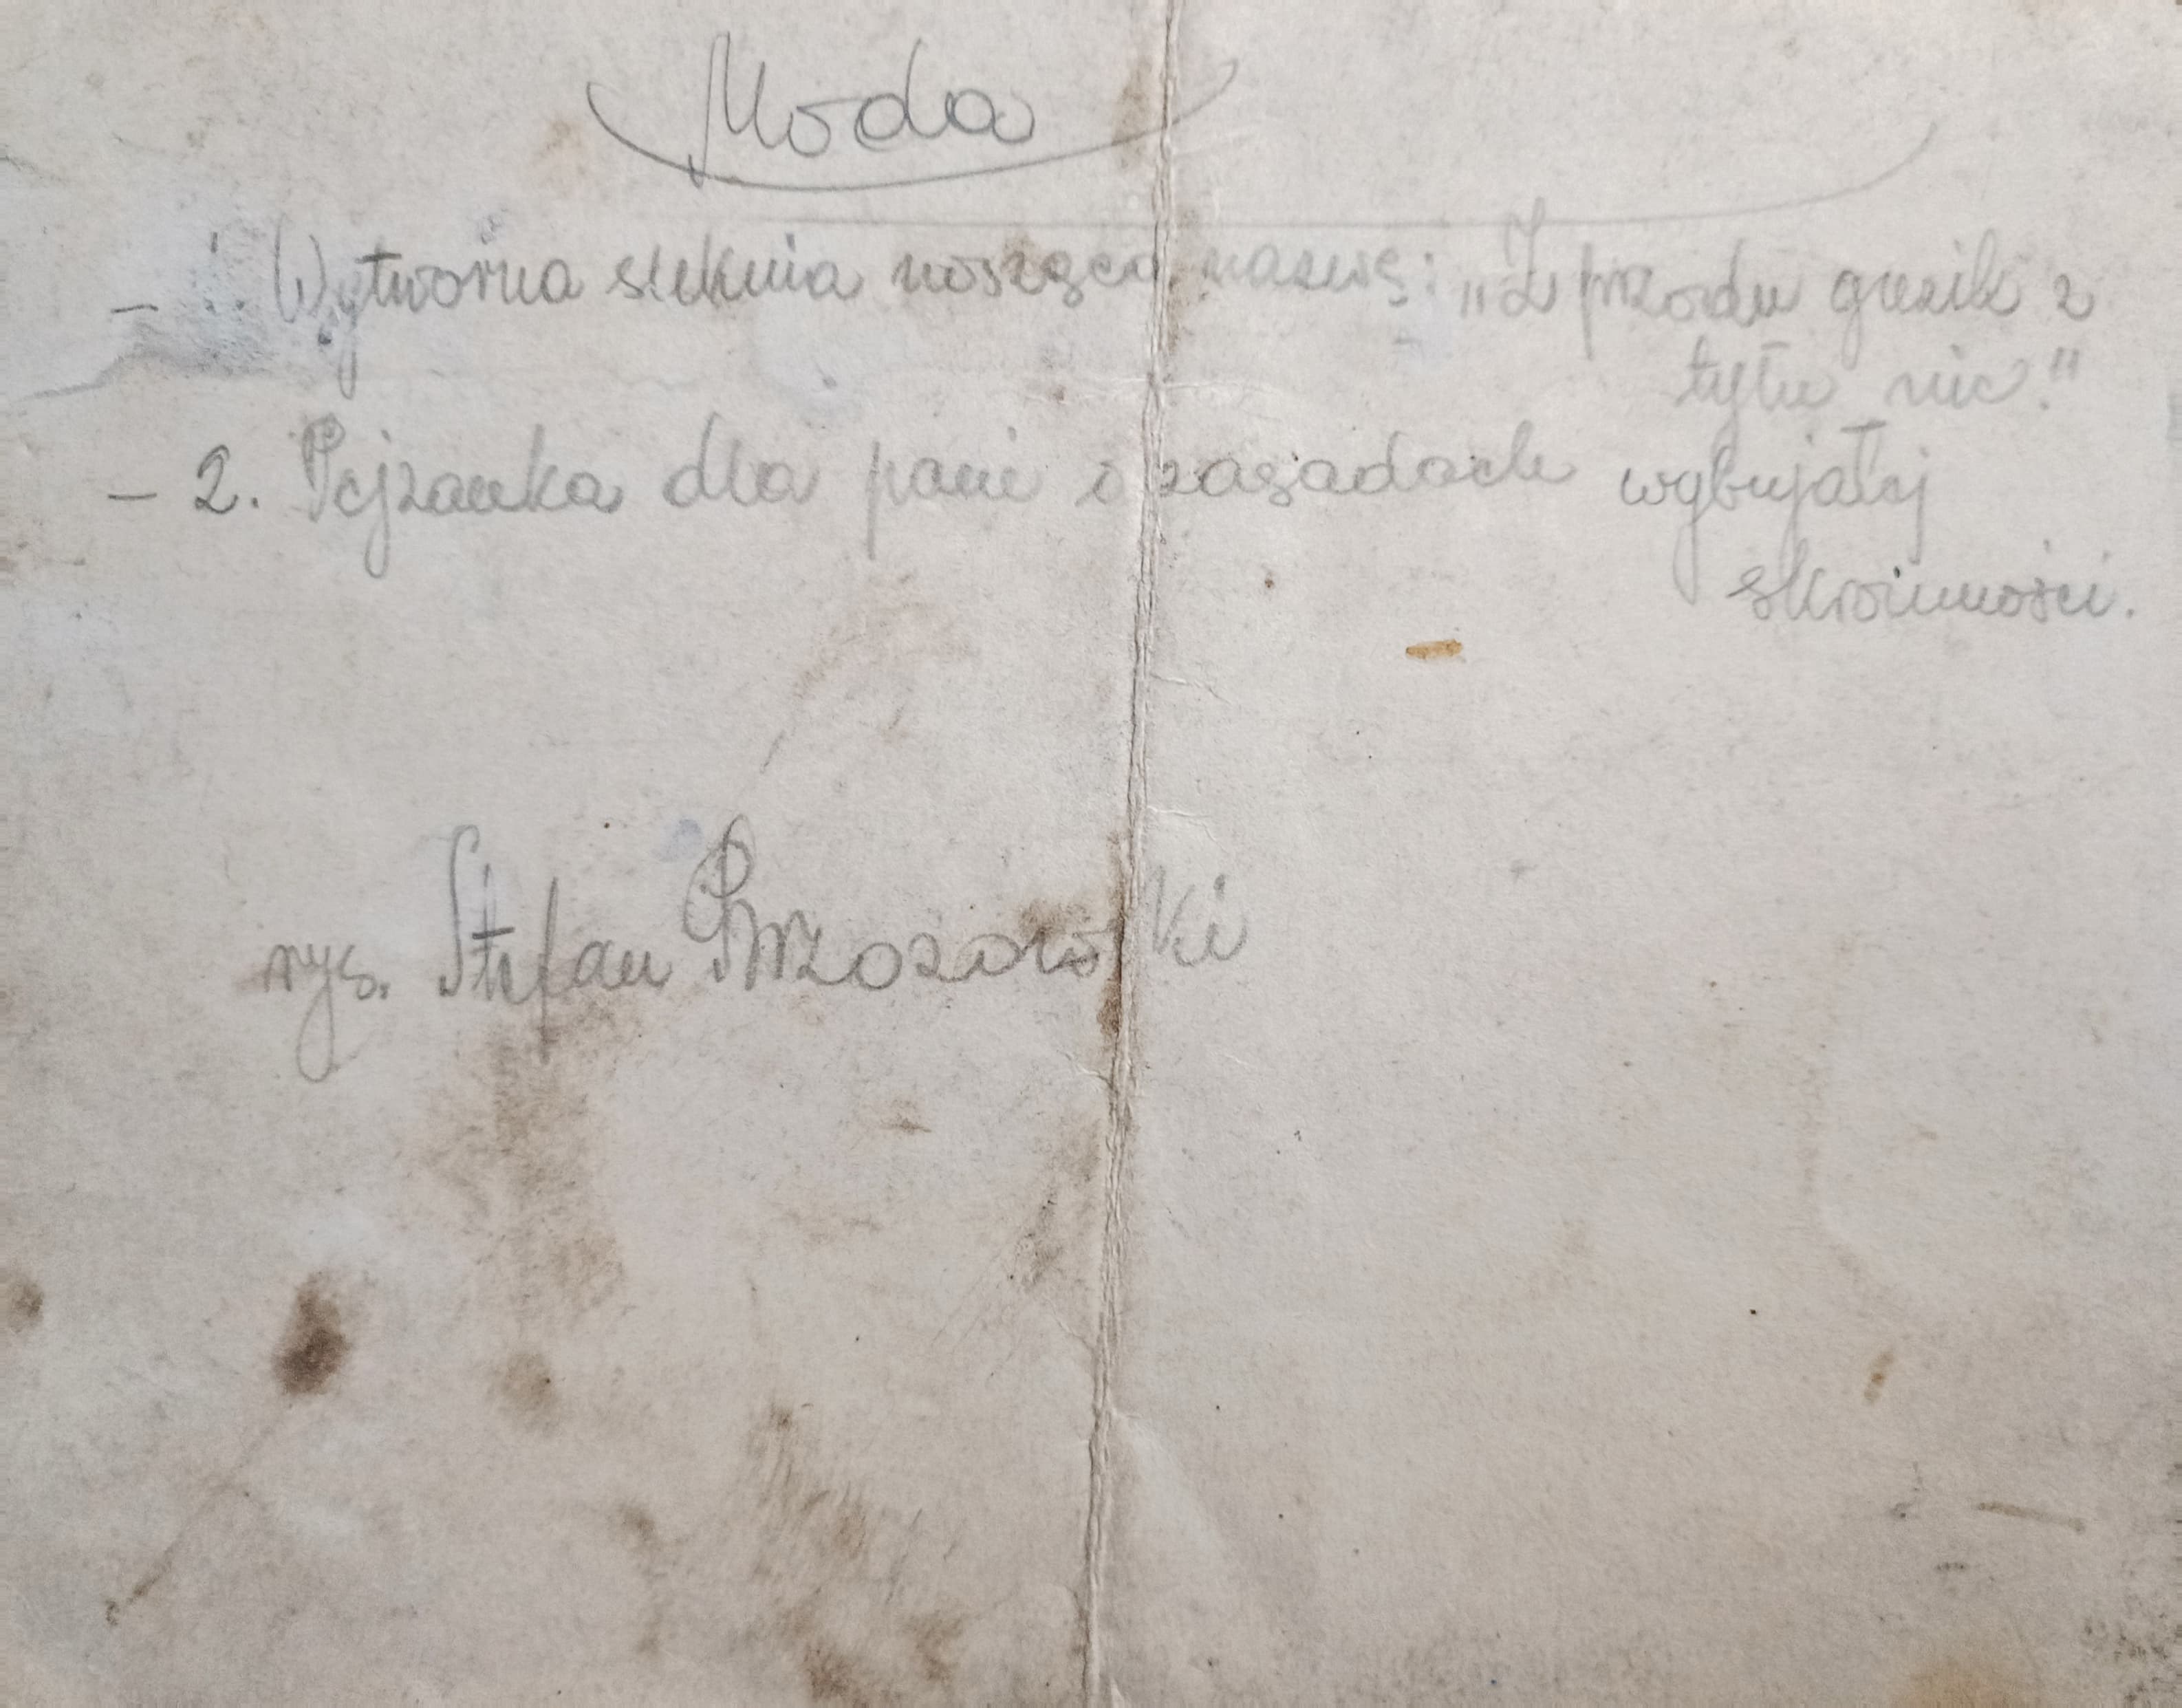 Moda
– 1. Wytworna suknia nosząca nazwę: „Z przodu guzik z
tyłu nic."
– 2. Pejzanka dla pani o zasadach wybujałej
skromności.
rys. Stefan Brzozowski